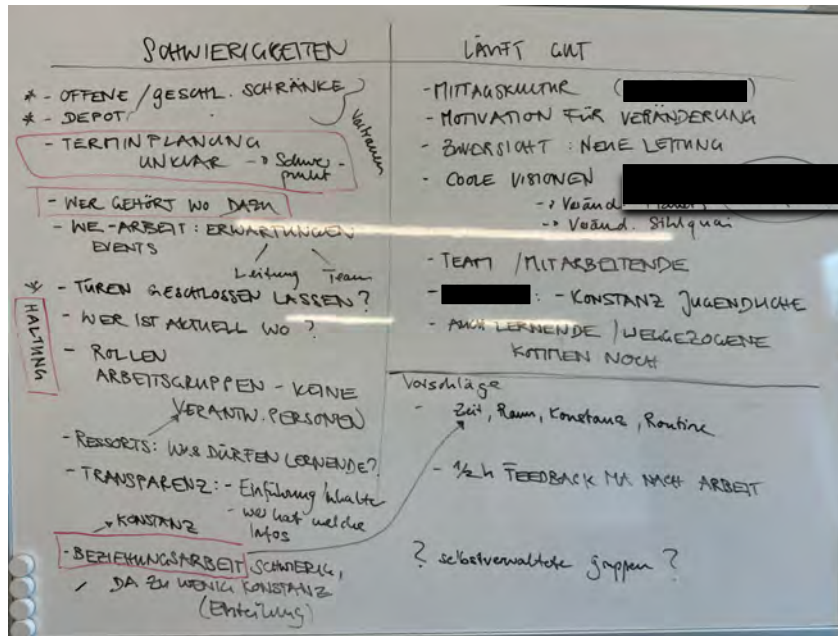 SCHWIERIGKEITEN
* - OFFENE / GESCHL. SCHRÄNKE
* - DEPOT
Vertrauen
- TERMINPLANUNG
UNKLAR -> Schwer-
punkt
- WER GEHÖRT WO DAZU
- WE-ARBEIT: ERWARTUNGEN
EVENTS
Leitung Team
* - TÜREN GESCHLOSSEN LASSEN?
HALTUNG
- WER IST AKTUELL WO?
- ROLLEN
ARBEITSGRUPPEN - KEINE
VERANTW. PERSONEN
- RESSORTS: WAS DÜRFEN LERNENDE?
- TRANSPARENZ: - Einführung Inhalte
- wer hat welche
Infos
KONSTANZ
- BEZIEHUNGSARBEIT SCHWIERIG,
DA ZU WENIG KONSTANZ
(Einteilung)
LÄUFT GUT
- MITTAGSKULTUR ( )
- MOTIVATION FÜR VERÄNDERUNG
- ZUVERSICHT: NEUE LEITUNG
- COOLE VISIONEN
-> Veränd.
-> Veränd. Sihlquai
- TEAM / MITARBEITENDE
- : - KONSTANZ JUGENDLICHE
- AUCH LERNENDE / WEGGEZOGENE
KOMMEN NOCH
Vorschläge
- Zeit, Raum, Konstanz, Routine
- 1/2 h FEEDBACK MA NACH ARBEIT
? selbstverwaltete gruppen ?